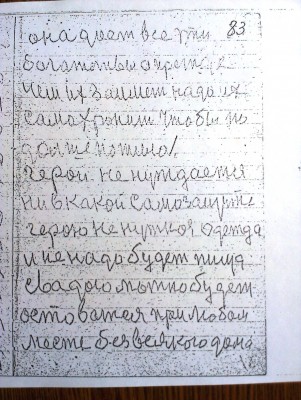 83
она дает все эти
богатствы а прежде
чем их заимет надо их
само хронит чтобы по
дольше
герой не нуждается
ни в какой самозащите
герою не нужноя одежда
и не надо будет пища
свадого можно будет
оставатся при любом
месте без всякого дома